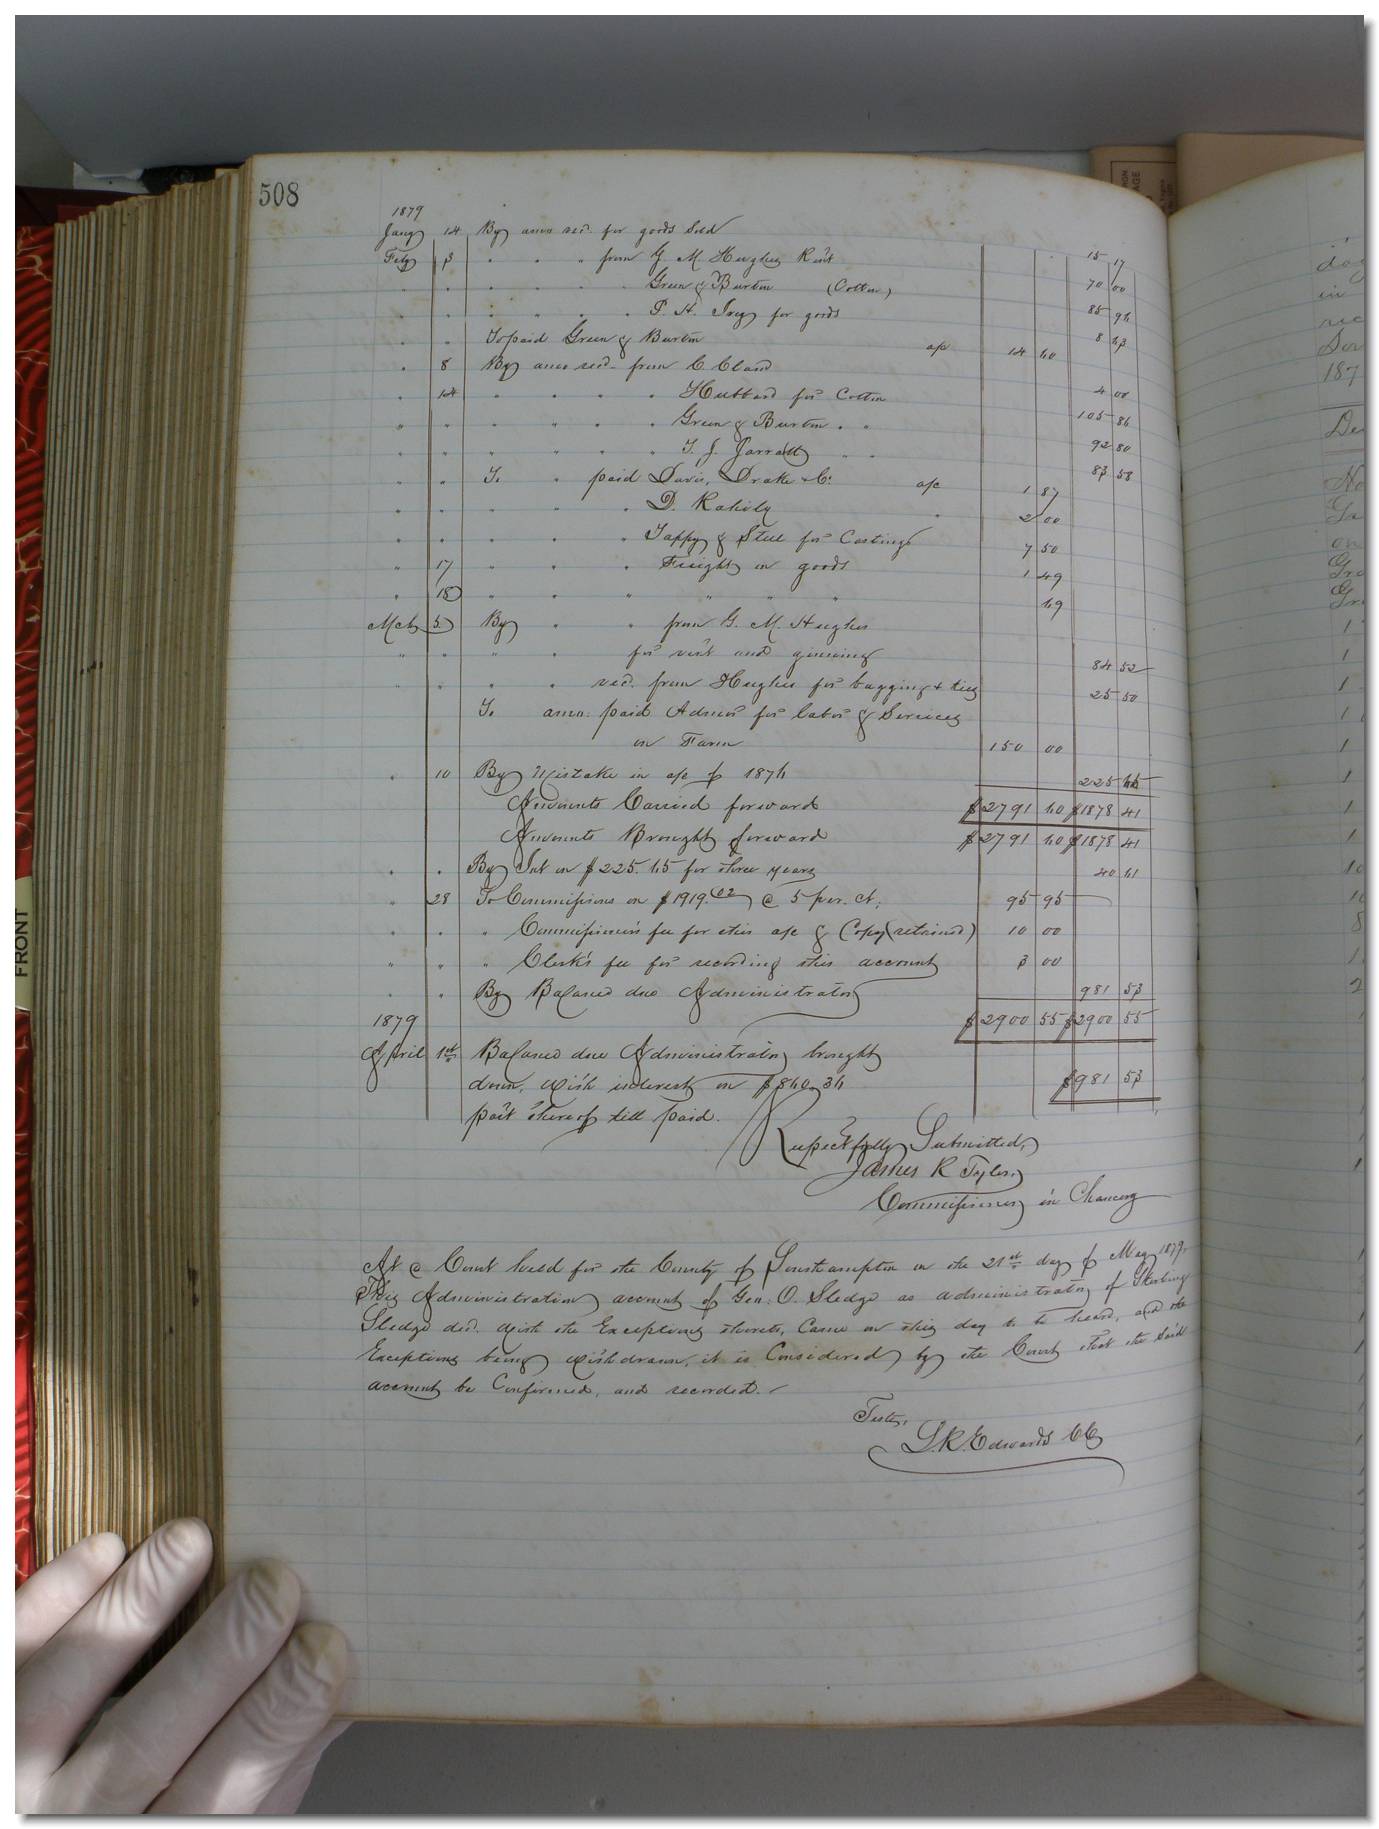 508
1879
Jany 14 By amo. recd. for goods Sold 15 17
Feby 3 " " " from G. M. Hughes Rent 70 00
" " " " " " Green & Burton (Cotton) 85 96
" " " " " " P. H. Ivey for goods 8 63
" " To paid Green & Burton a/c 14 60
" 8 By amo recd. from C. Claud 4 00
" 14 " " " " Hubbard for Cotton 105 86
" " " " " " Green & Burton " " 92 80
" " " " " " T. J. Jarratt " " 83 58
" " To " paid Davis, Drake & Co. a/c 1 87
" " " " " D. Rahily " 2 00
" " " " " Tappy & Steel for Castings 7 50
" 17 " " " Freight on goods 1 49
" 18 " " " " " " 69
Mch 5 By " " from G. M. Hughes
" " " " for rent and ginning 84 52
" " " " recd. from Hughes for bagging & ties 25 50
To amo. paid Admor for labor & Services
on Farm 150 00
" 10 By Mistake in a/c of 1876 225 65
Amounts Carried forward $2791 60 $1878 41
Amounts Brought forward $2791 60 $1878 41
" " By Int on $225.65 for three years 40 61
" 28 To Commissions on $1919.02 @ 5 per. ct. 95 95
" " " Commissioner's fee for this a/c & Copy (retained) 10 00
" " " Clerk's fee for recording this account 3 00
" " By Balance due Administrator 981 53
1879 $2900 55 $2900 55
April 1st Balance due Administrator brought
down, with interest on $860.36 $981 53
part thereof till paid.
Respectfully Submitted,
James R Tyler,
Commissioner in Chancery
At a Court held for the County of Southampton on the 21st day of May 1879.
This Administration account of Geo. O. Sledge as administrator of Sterling
Sledge decd. with the Exceptions thereto, Came on this day to be heard, and the
Exceptions being withdrawn, it is Considered by the Court that the said
account be Confirmed, and recorded.
Teste,
L. R. Edwards CC
FRONT